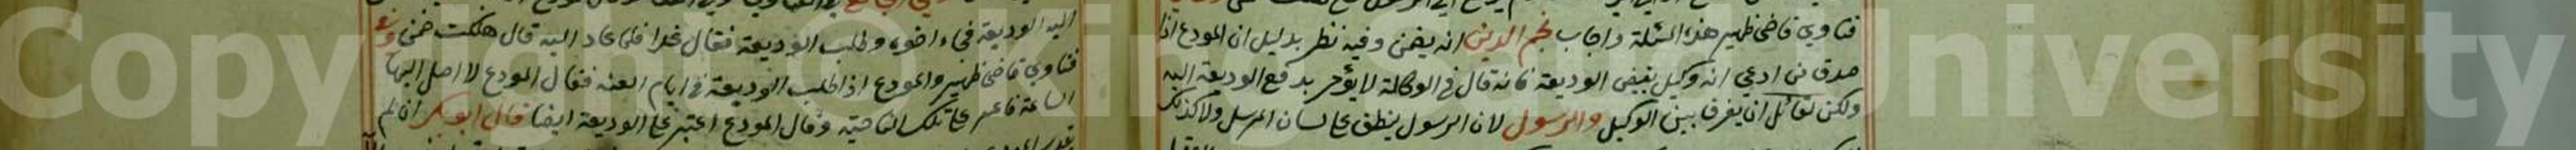 فتاوي قاضى ظهير هذه المسئلة واجاب نجم الدين انه يضمن وفيه نظر بدليل ان المودع اذا
صدق من ادعي انه وكيل بقبض الوديعة فانه قال في الوكالة لا يؤمر بدفع الوديعة اليه
ولكن لقائل ان يفرق بين الوكيل والرسول لان الرسول ينطق على لسان المرسل ولا كذلك
اليه الوديعة فجاء اخوه وطلب الوديعة فقال غدا فلما عاد اليه قال هلكت ضمن وفى
فتاوي قاضى ظهير والمودع اذا طلب الوديعة في ايام الفتنة فقال المودع لا اصل اليها
الساعة فاغير على تلك الناحية وقال المودع اغير على الوديعة ايضا قال ابو بكر ان لم
Copyright © King University